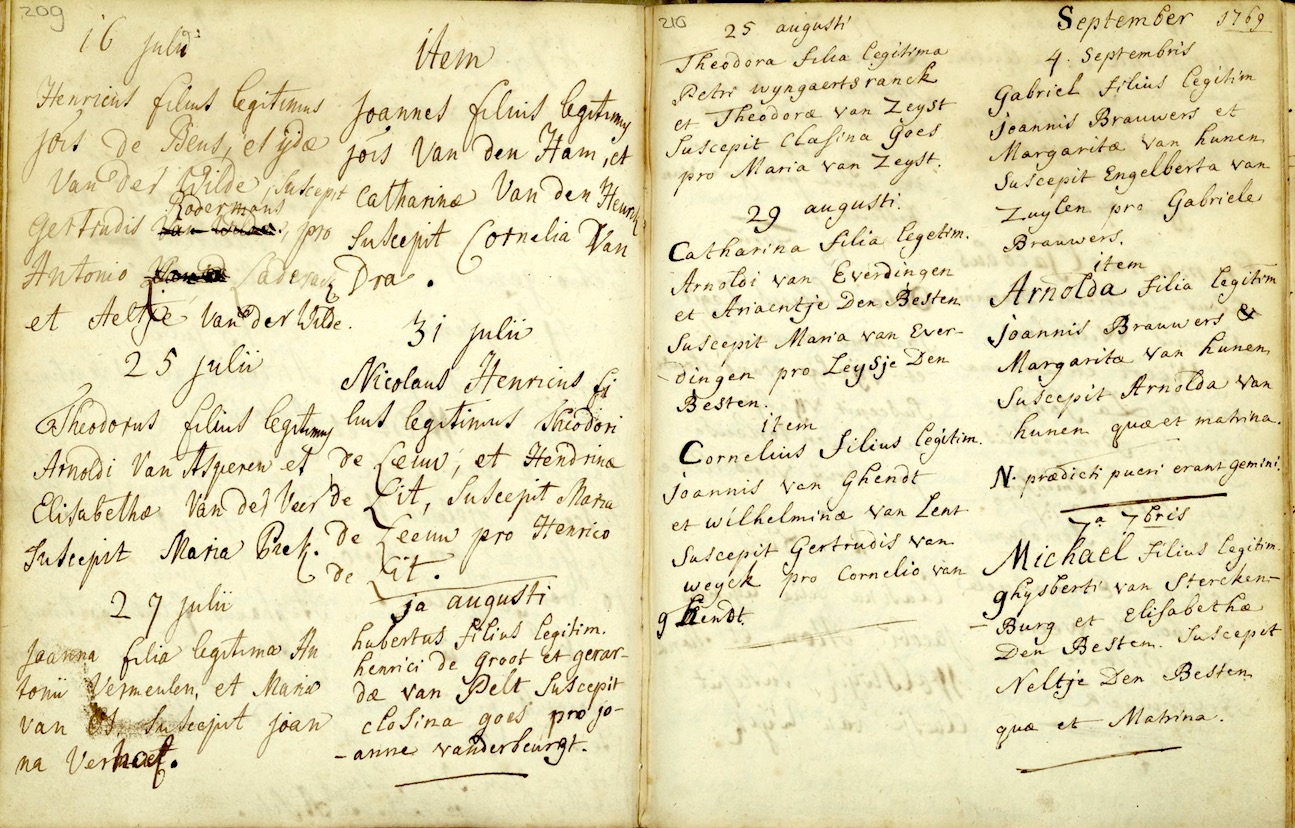 209
16 julii
Henricus filius legitimus
jois de Bens, et ijdæ
Van der Wilde, suscepit
Rodermans
gertrudis, pro
Antonio
et Aeltje Van der Wilde.
25 julii
Theodorus filius legitimus
Arnoldi Van Asperen et
Elisabethæ Van der Veer
suscepit Maria Piek.
27 julii
Joanna filia legitima An
tonii Vermeulen, et Mariæ
van Es suscepit joan
na Verhoef.
item
joannes filius legitimus
jois Van den Ham, et
Catharinæ Van den
suscepit Cornelia Van
Dra.
31 julii
Nicolaus Henricus fi
lius legitimus Theodori
de Leeuw, et Hendrinæ
de Lit, suscepit Maria
de Leeuw pro Henrico
de Lit.
ja augusti
hubertus filius legitim.
henrici de Groot et gerar-
dæ van Pelt suscepit
closina goes pro jo-
-anne vanderbeurgt.
210
25 augusti
Theodora filia legitima
Petri wyngaertsranck
et Theodoræ van Zeyst
suscepit Clasina Goes
pro Maria van Zeyst.
29 augusti.
Catharina filia legetim.
Arnoldi van Everdingen
et Ariaentje Den Besten
suscepit Maria van Ever-
dingen pro Leysje Den
Besten.
item
Cornelius filius legitim.
joannis van Ghendt
et wilhelminæ van Lent
suscepit Gertrudis van
weyck pro Cornelio van
ghendt.
September 1769
4. Septembris
Gabriel filius legitim
joannis Brauwers et
Margaritæ van hunen
suscepit Engelberta van
Zuylen pro Gabriele
Brauwers.
item
Arnolda filia legitim
joannis Brauwers &
Margarita van hunen
suscepit Arnolda van
hunen quæ et matrina.
N. prædicti pueri erant gemini.
7a 7bris
Michael filius legitim.
ghysberti van Stercken-
-Burg et Elisabethæ
Den Besten. suscepit
Neltje Den Besten
quæ et Matrina.